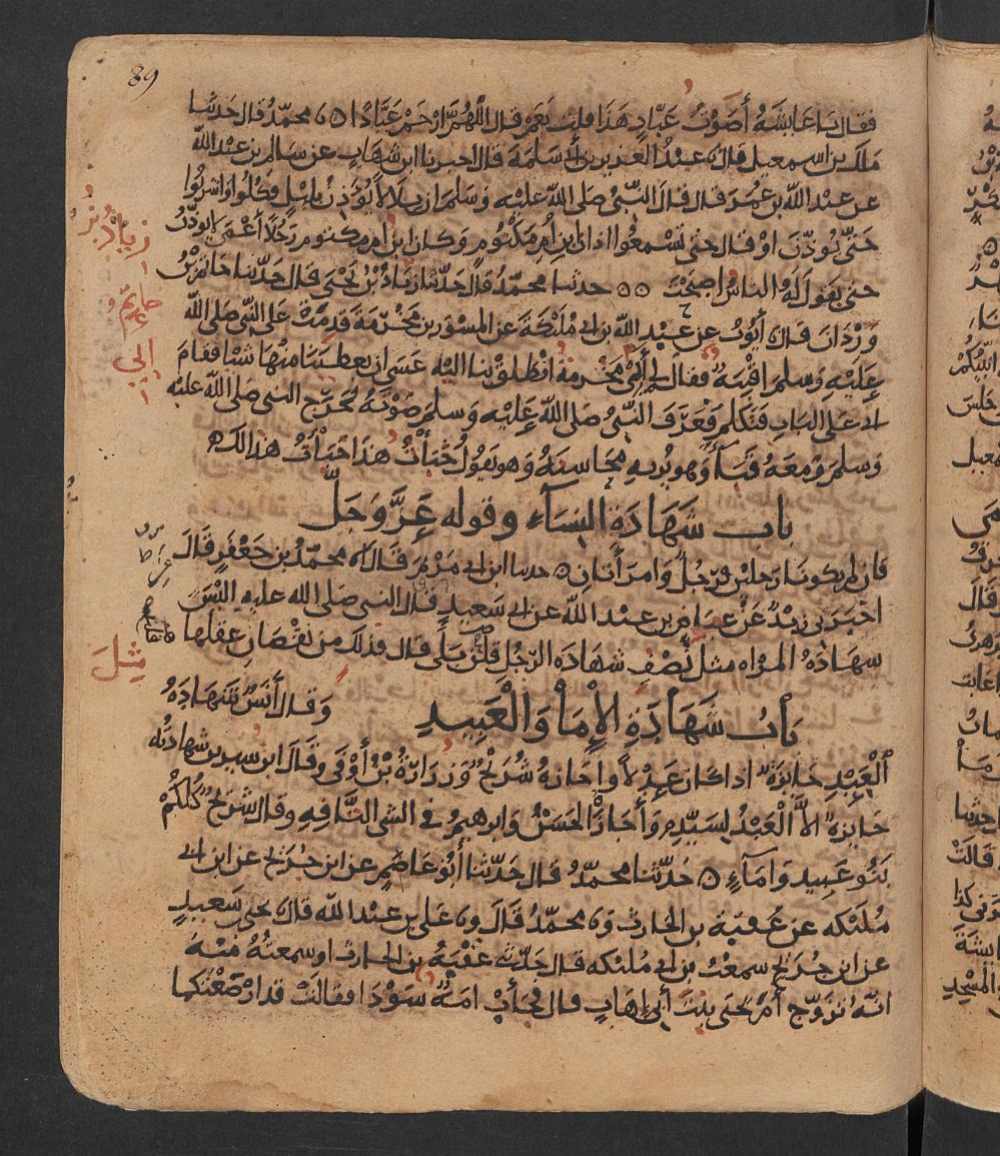 89
فقال يا عايشة أصوت عباد هذا قلت نعم قال اللهم ارحم عبادا ٥ محمد قال حدثنا
ملك بن اسمعيل قال عبد العزيز بن أبي سلمة قال اخبرنا ابن شهاب عن سالم بن عبد الله
عن عبد الله بن عمر قال قال النبي صلى الله عليه وسلم ان بلالا يؤذن بليل فكلوا واشربوا
حتى يؤذن او قال حتى تسمعوا اذان ابن أم مكتوم وكان ابن ام مكتوم رجلا أعمى لا يؤذن
حتى يقول له الناس اصبحت ٥٥ حدثنا محمد قال حدثنا زياد بن يحيى قال حدثنا حاتم بن
وردان قال أيوب عن عبد الله بن ابي مليكة عن المسور بن مخرمة قدمت على النبي صلى الله
عليه وسلم اقبية فقال لي أبي مخرمة انطلق بنا اليه عسى ان يعطينا منها شيا فقام
ابي على الباب فتكلم فعرف النبي صلى الله عليه وسلم صوته فخرج النبي صلى الله عليه
وسلم ومعه قباء وهو يريه محاسنه وهو يقول خبأت هذا لك خبأت هذا لك
باب شهادة النساء وقوله عز وجل
فان لم يكونا رجلين فرجل وامرأتان ٥ حدثنا ابن ابي مريم قال محمد بن جعفر قال
اخبرني زيد عن عياض بن عبد الله عن ابي سعيد قال النبي صلى الله عليه اليس
شهادة المراه مثل نصف شهادة الرجل قلن بلى قال فذلك من نقصان عقلها
باب شهادة الإما والعبيد وقال أنس شهادة
العبد جايزة اذا كان عدلا وأجازه شريح وزرارة بن أوفى وقال ابن سيرين شهادته
جايزة الا العبد لسيده وأجازه الحسن وابرهيم في الشي التافه وقال شريح كلكم
بنو عبيد واماء ٥ حدثنا محمد قال حدثنا أبو عاصم عن ابن جريج عن ابن ابي
مليكه عن عقبة بن الحارث محمد قال علي بن عبد الله قال يحيى بن سعيد
عن ابن جريج سمعت بن ابي مليكه قال حدثني عقبة بن الحارث او سمعته منه
انه تزوج أم يحيى بنت أبي إهاب قال فجأت امة سودا فقالت قد ارضعتكما
زياد بن
حاتم
ابي
مثل